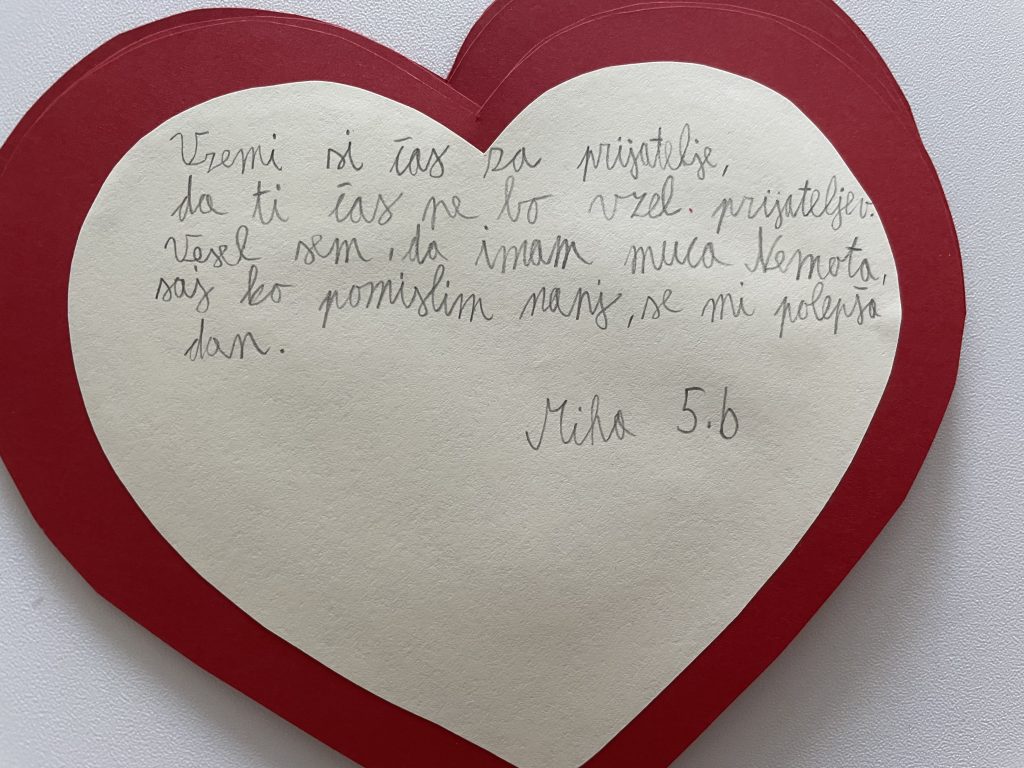 Vzemi si čas za prijatelje,
da ti čas ne bo vzel. prijateljev.
Vesel sem, da imam muca Nemota,
saj ko pomislim nanj, se mi polepša
dan.
Miha 5.b